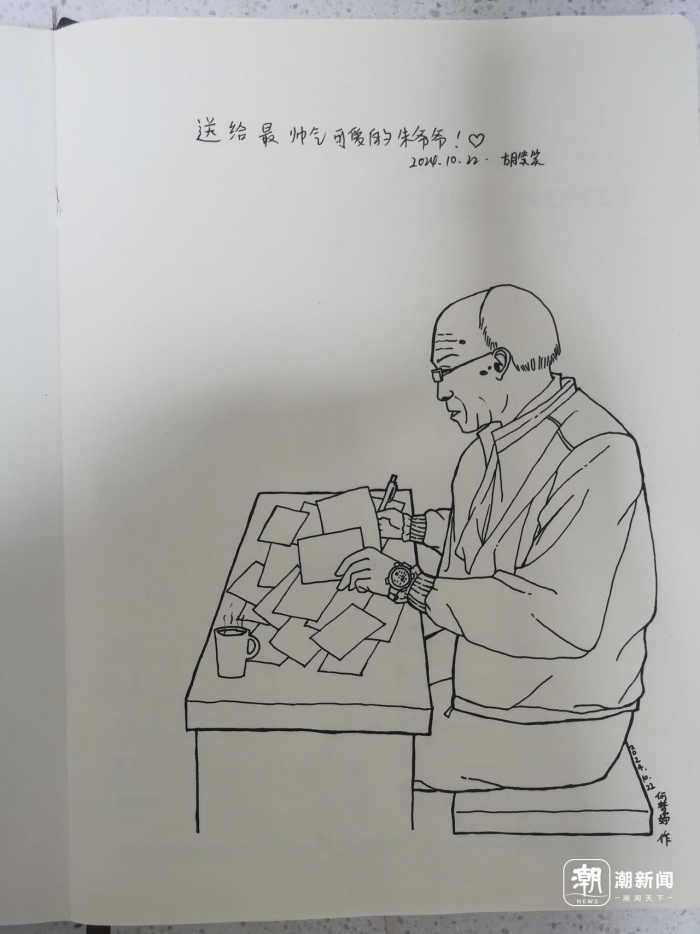 送给最帅气可爱的朱爷爷！♡
2024.10.22. 胡笑笑
2024.10.22 何梦婷 作
潮 NEWS
潮新闻
潮闻天下